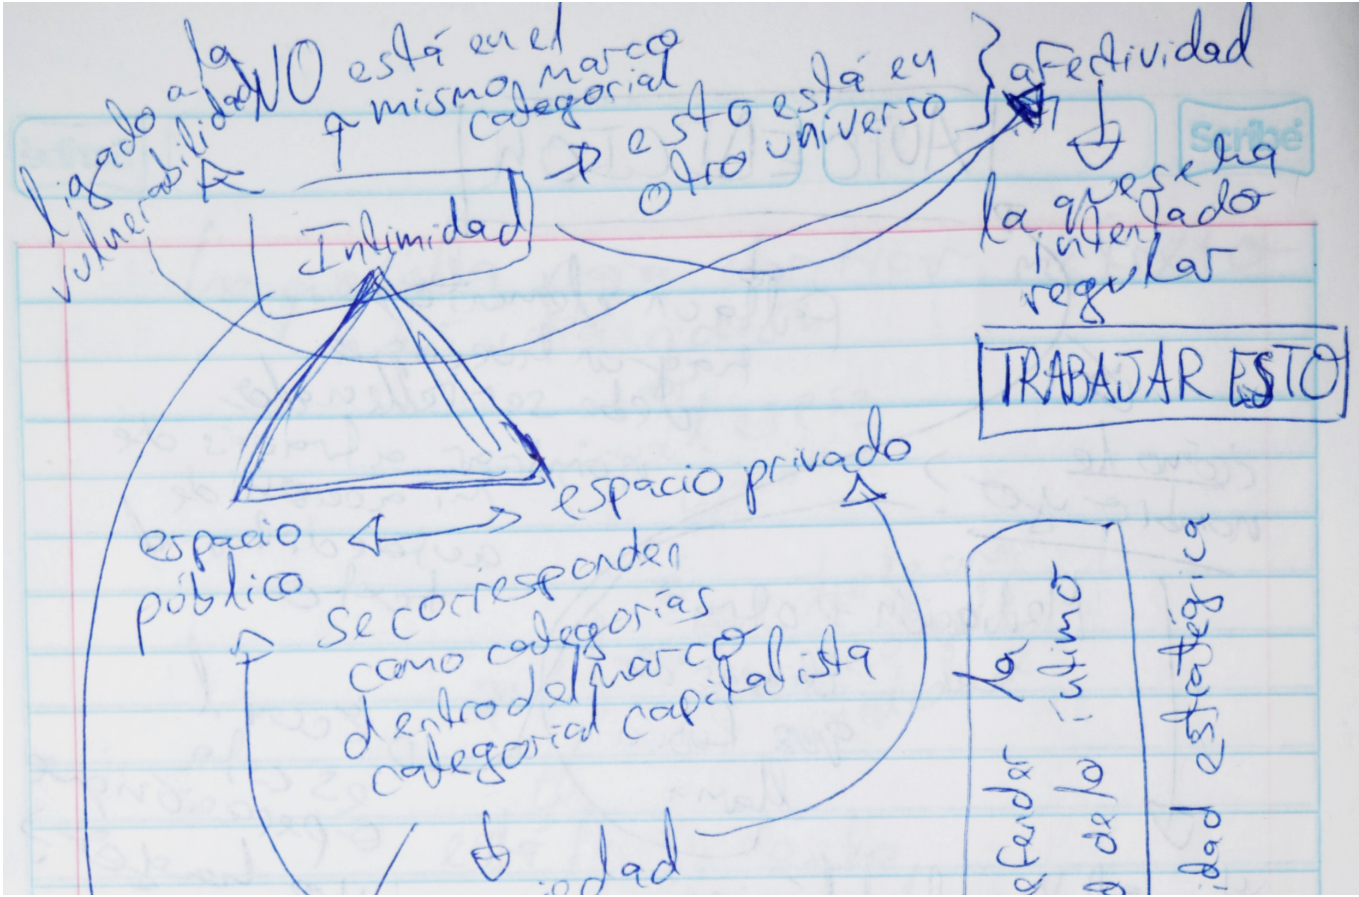 ligado a la
vulnerabilidad
NO está en el
mismo marco
categorial
esto está en
otro universo
afectividad
la que se ha
intentado
regular
Scribe
Intimidad
TRABAJAR ESTO
espacio privado
espacio
público
se corresponden
como categorías
dentro del marco
categorial capitalista
iedad
efender la
de lo íntimo
idad estratégica